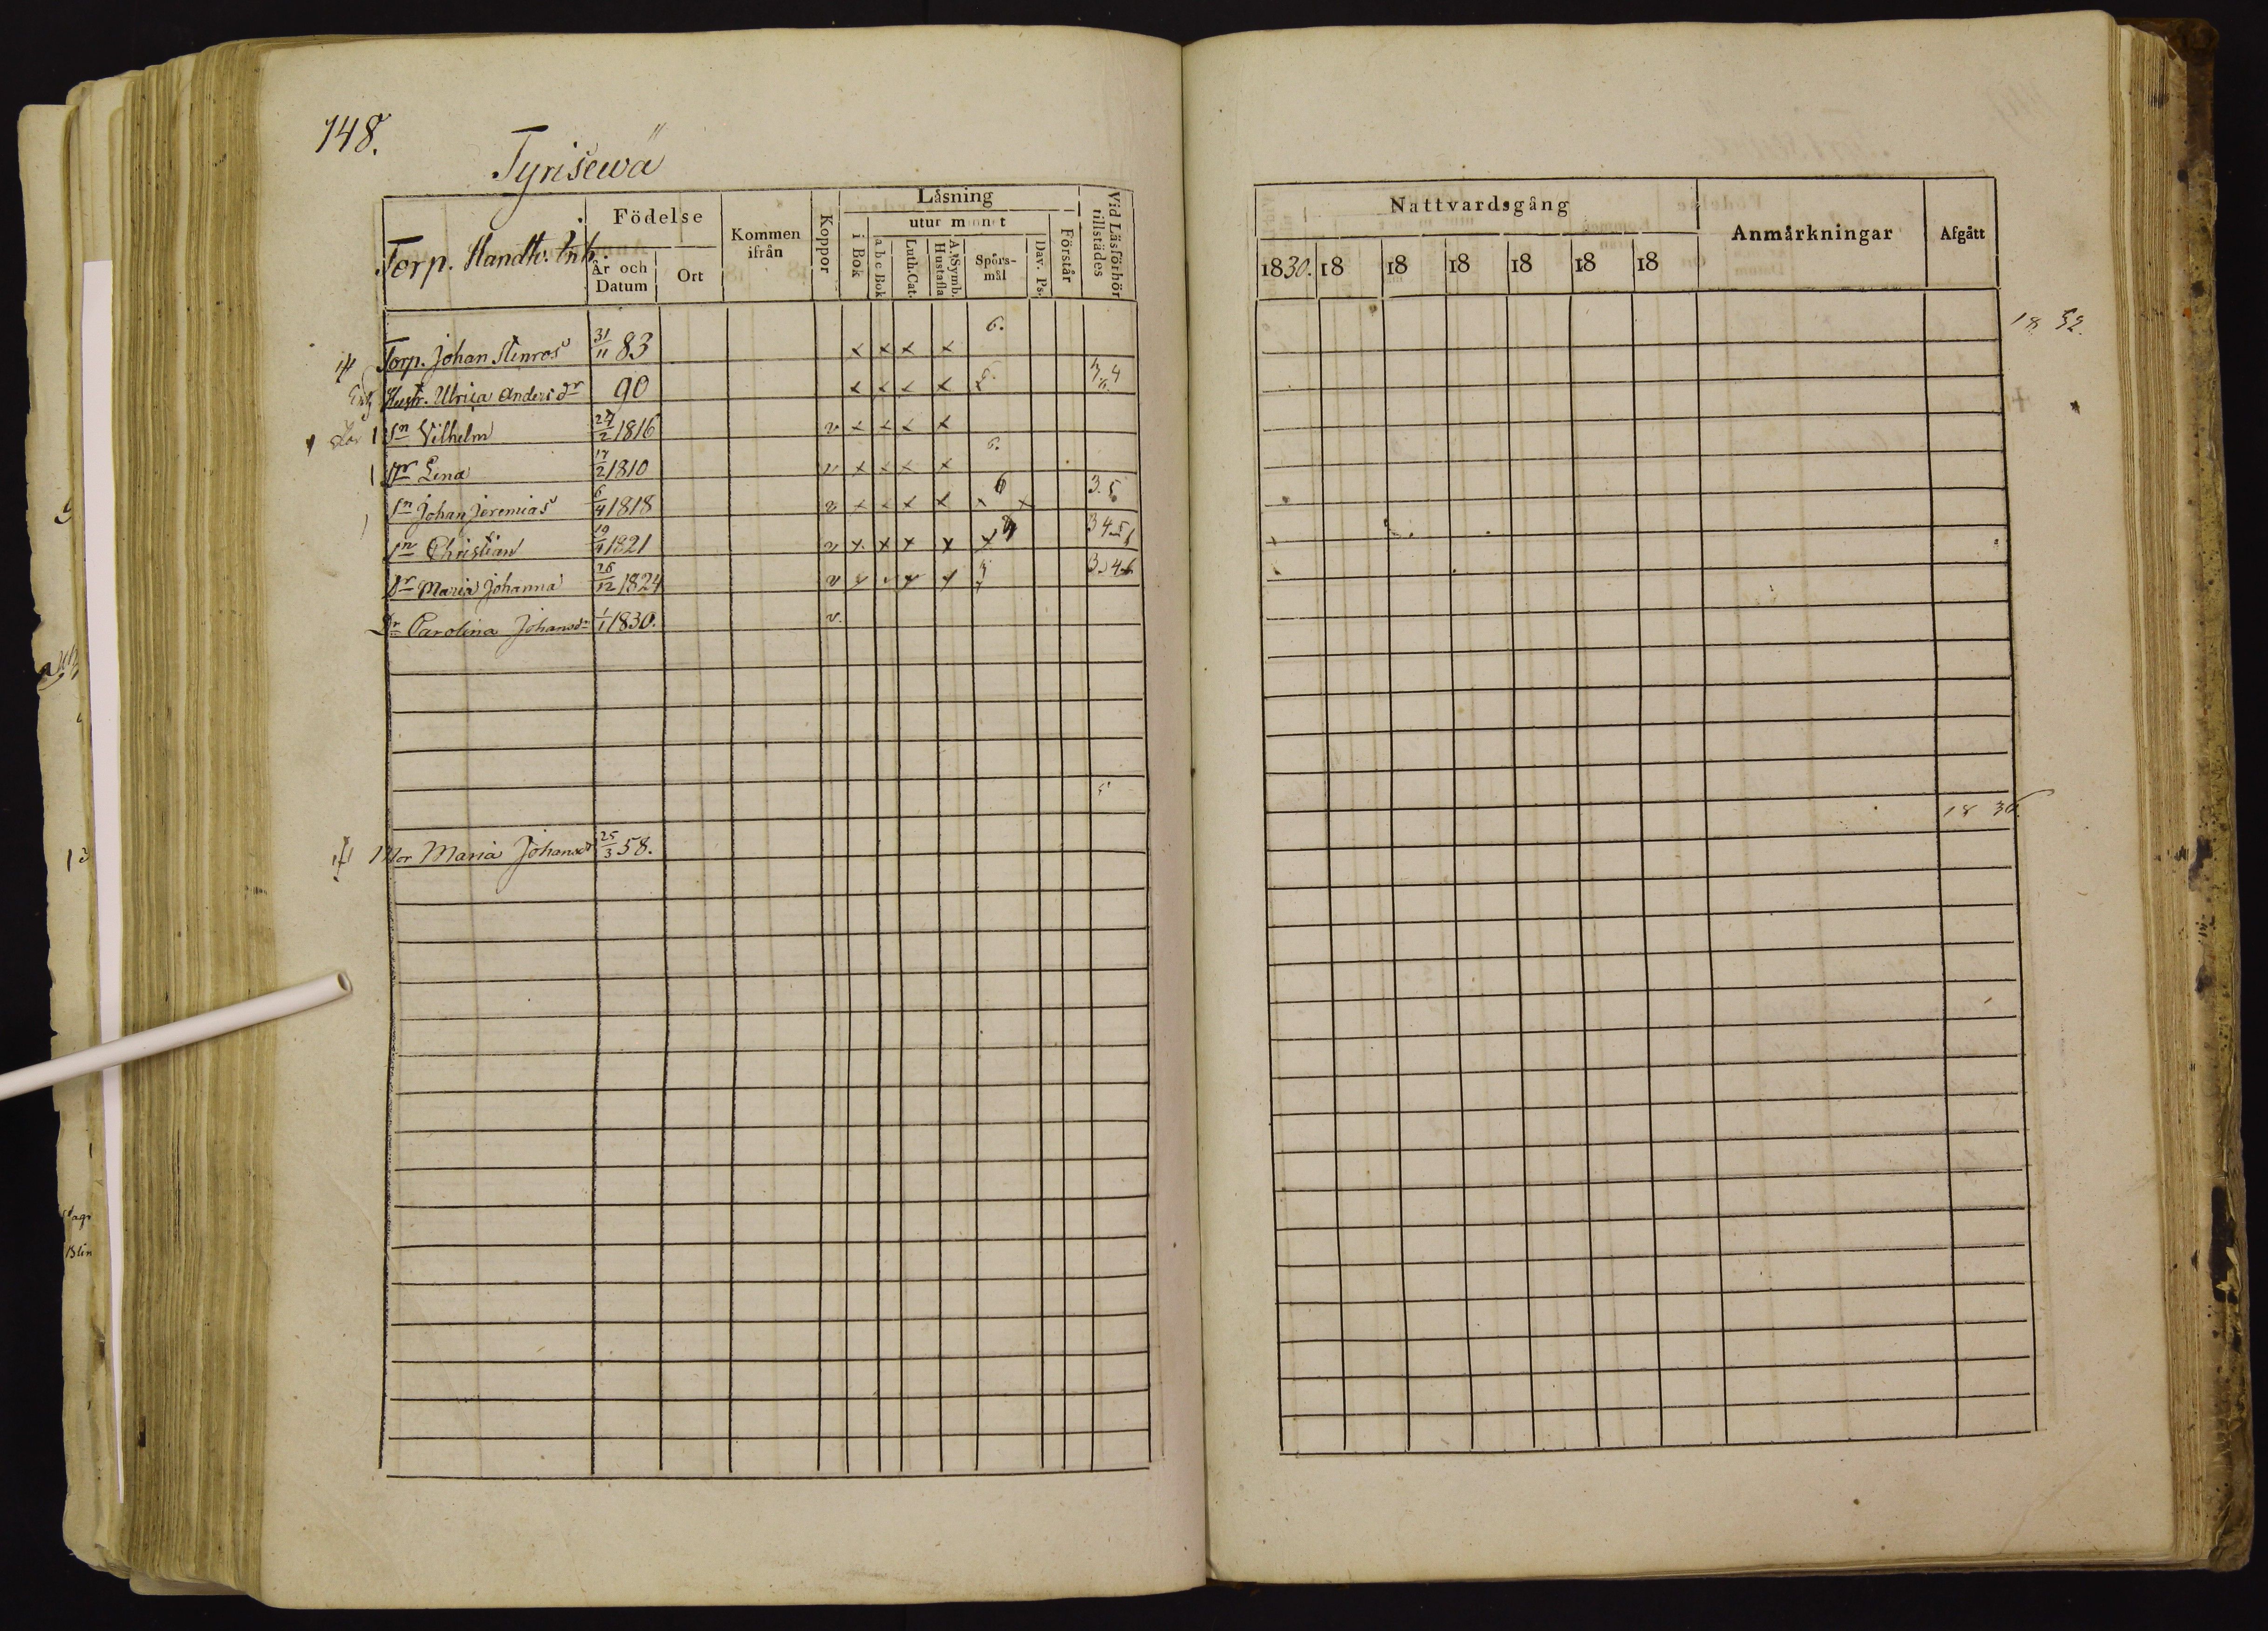 148.
Tyrisewä
Torp. Handtv. Enk.
Födelse
År och Datum
Ort
Kommen ifrån
Koppor
Läsning
i Bok
utur minnet
a b c Bok
Luth. Cat.
A. Symb. Hustafla
Spörs-mål
Dav. Ps.
Förstår
Vid Läsförhör tillstädes
Nattvardsgång
1830. 18 18 18 18 18 18
Anmärkningar
Afgått
Torp. Johan Stenros 31/11 83 x x x x 6. 18 32.
Enk Hustr. Ulrica Andersdr 90 x x x x 3/6 4
Sn Vilhelm 27/2 1816 v x x x x
Dr Lena 17/2 1810 v x x x x 6.
Sn Johan Jeremias 6/4 1818 v x x x x x 6 x 3.5
Sn Christian 19/4 1821 v x x x x x 3 4 5 6
Dr Maria Johanna 26/12 1824 v x x x x 3. 4 6
Dr Carolina Johansdr 1/1 1830. v.
Mor Maria Johansdr 25/3 58. 18 36.